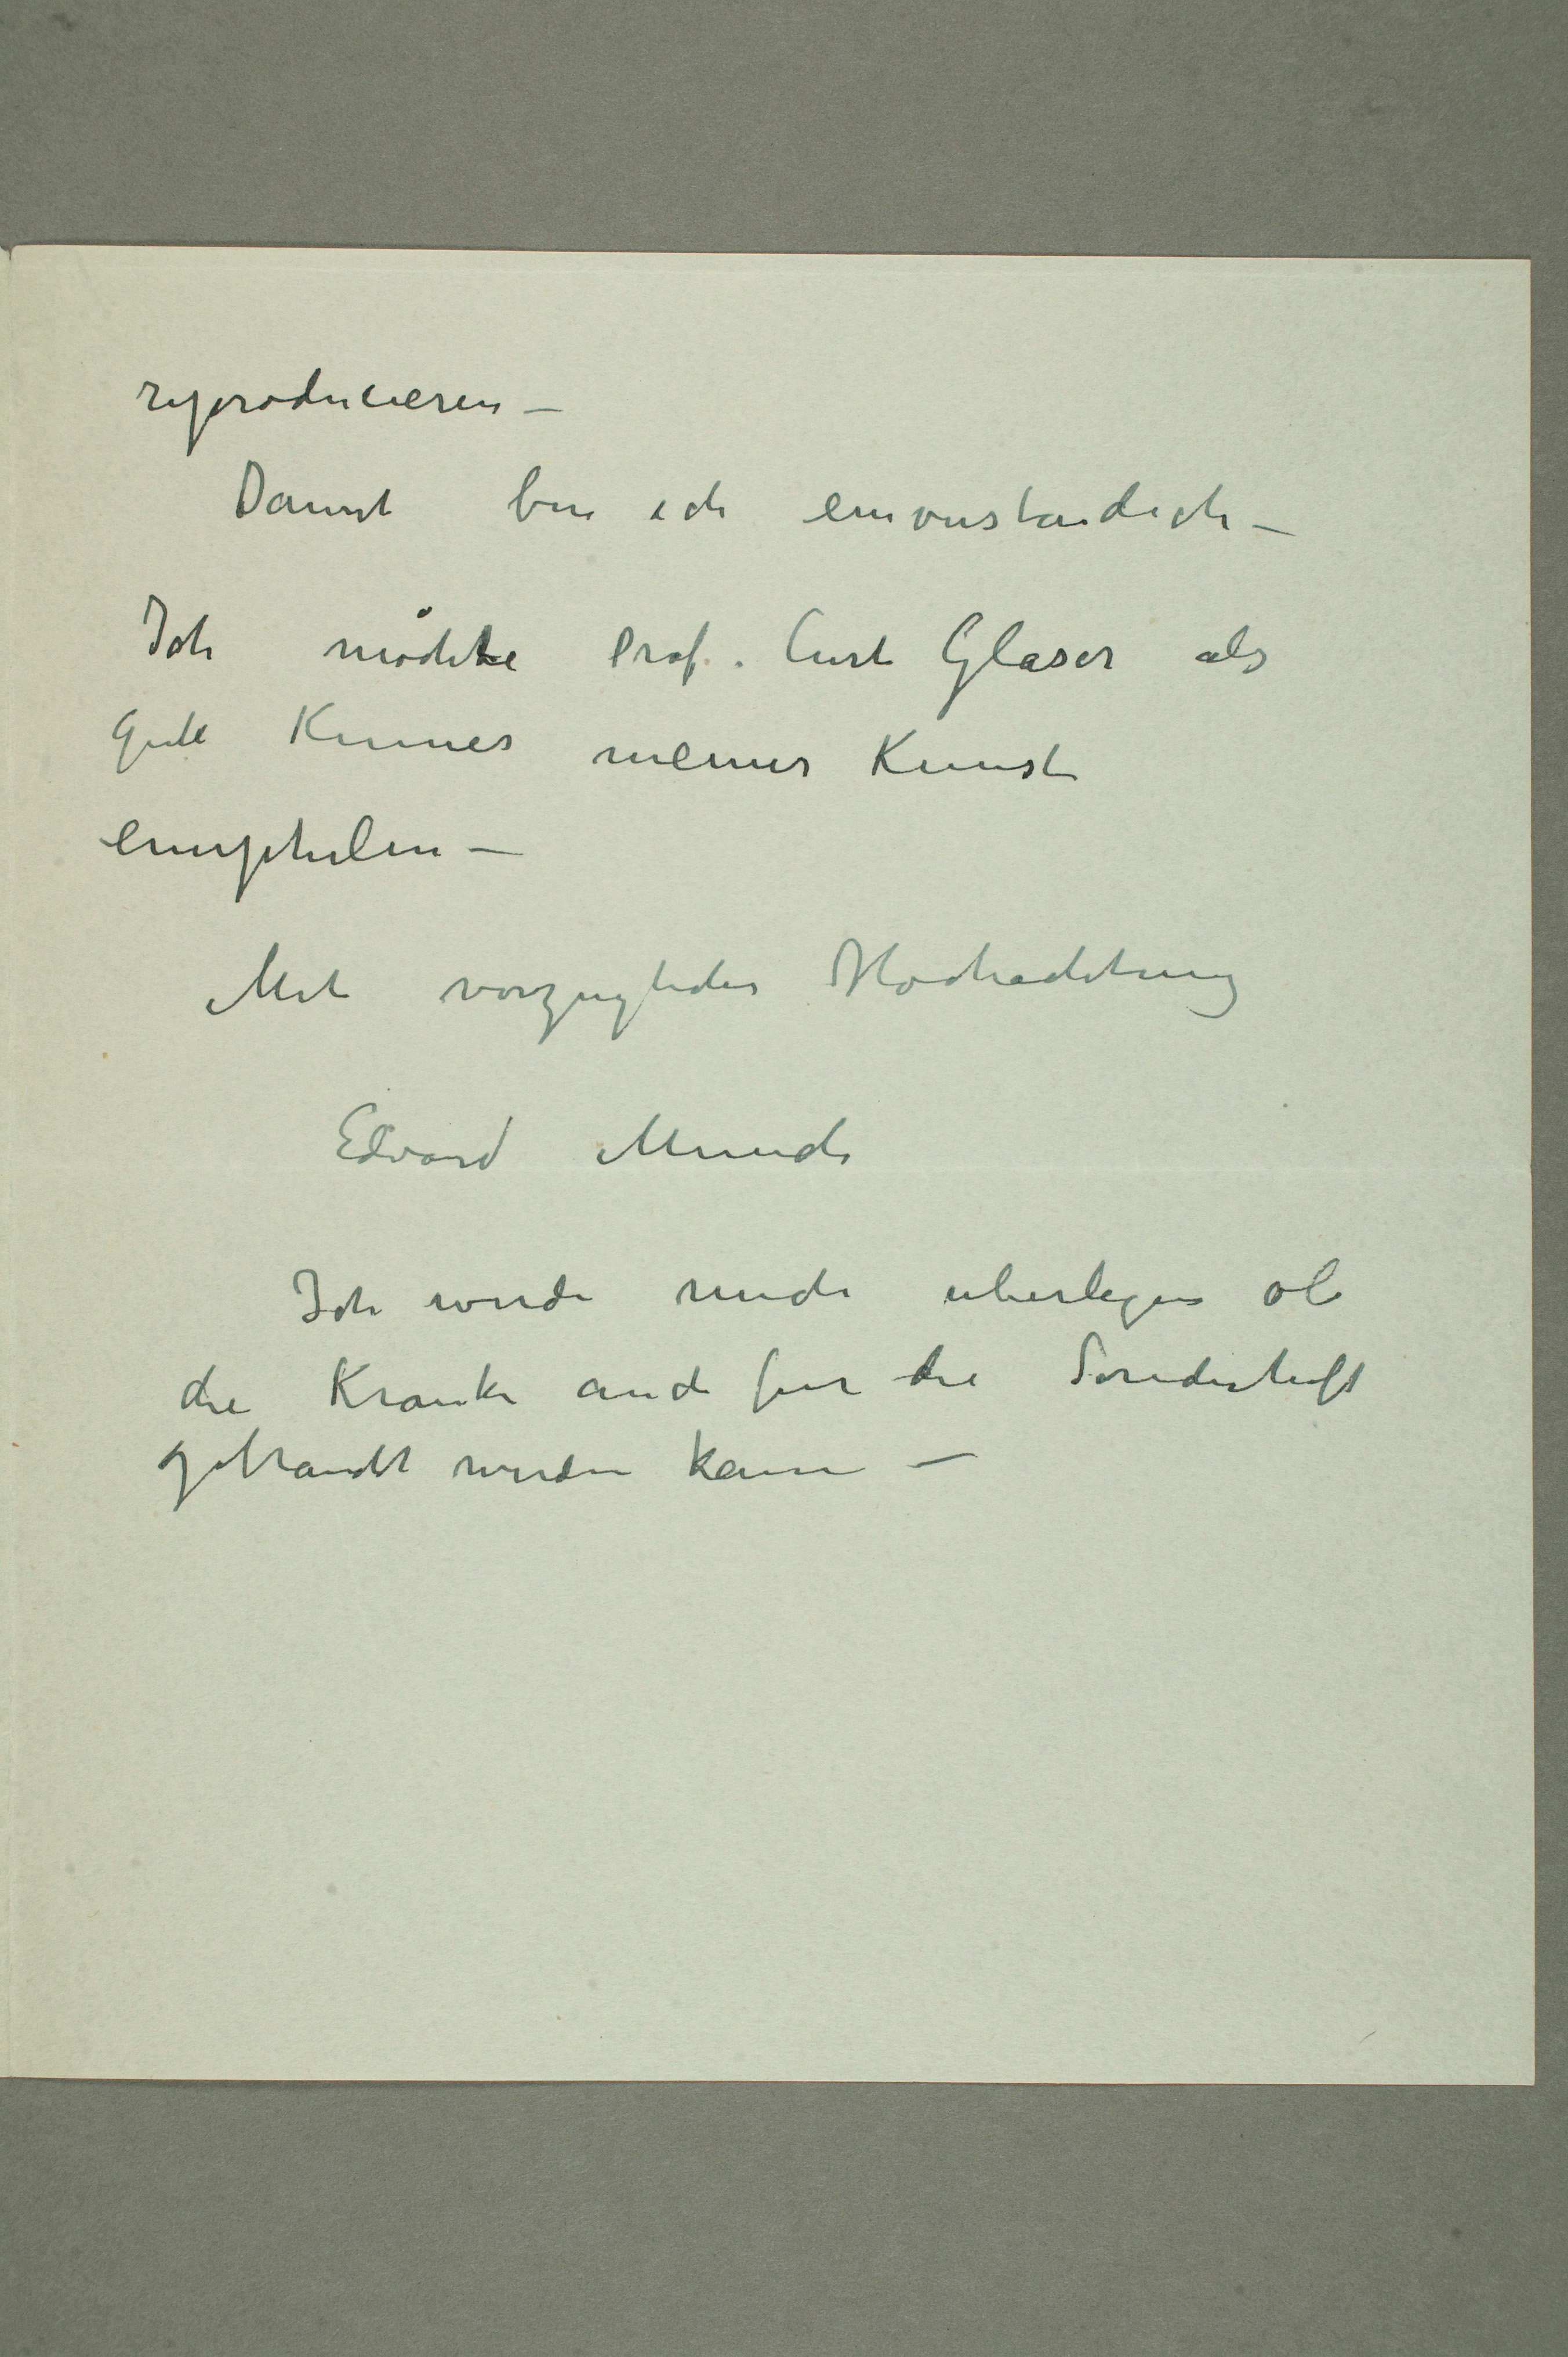 reproducieren –
Damit bin ich einverstandich –
Ich möchte Prof. Curt Glaser als
gute Kenner meiner Kunst
emphelen –
Mit vorzuglicher Hochachtung
Edvard Munch
Ich werde mich uberlegen ob
die Kranke auch fur die Sonderheft
gebraucht werden kann –